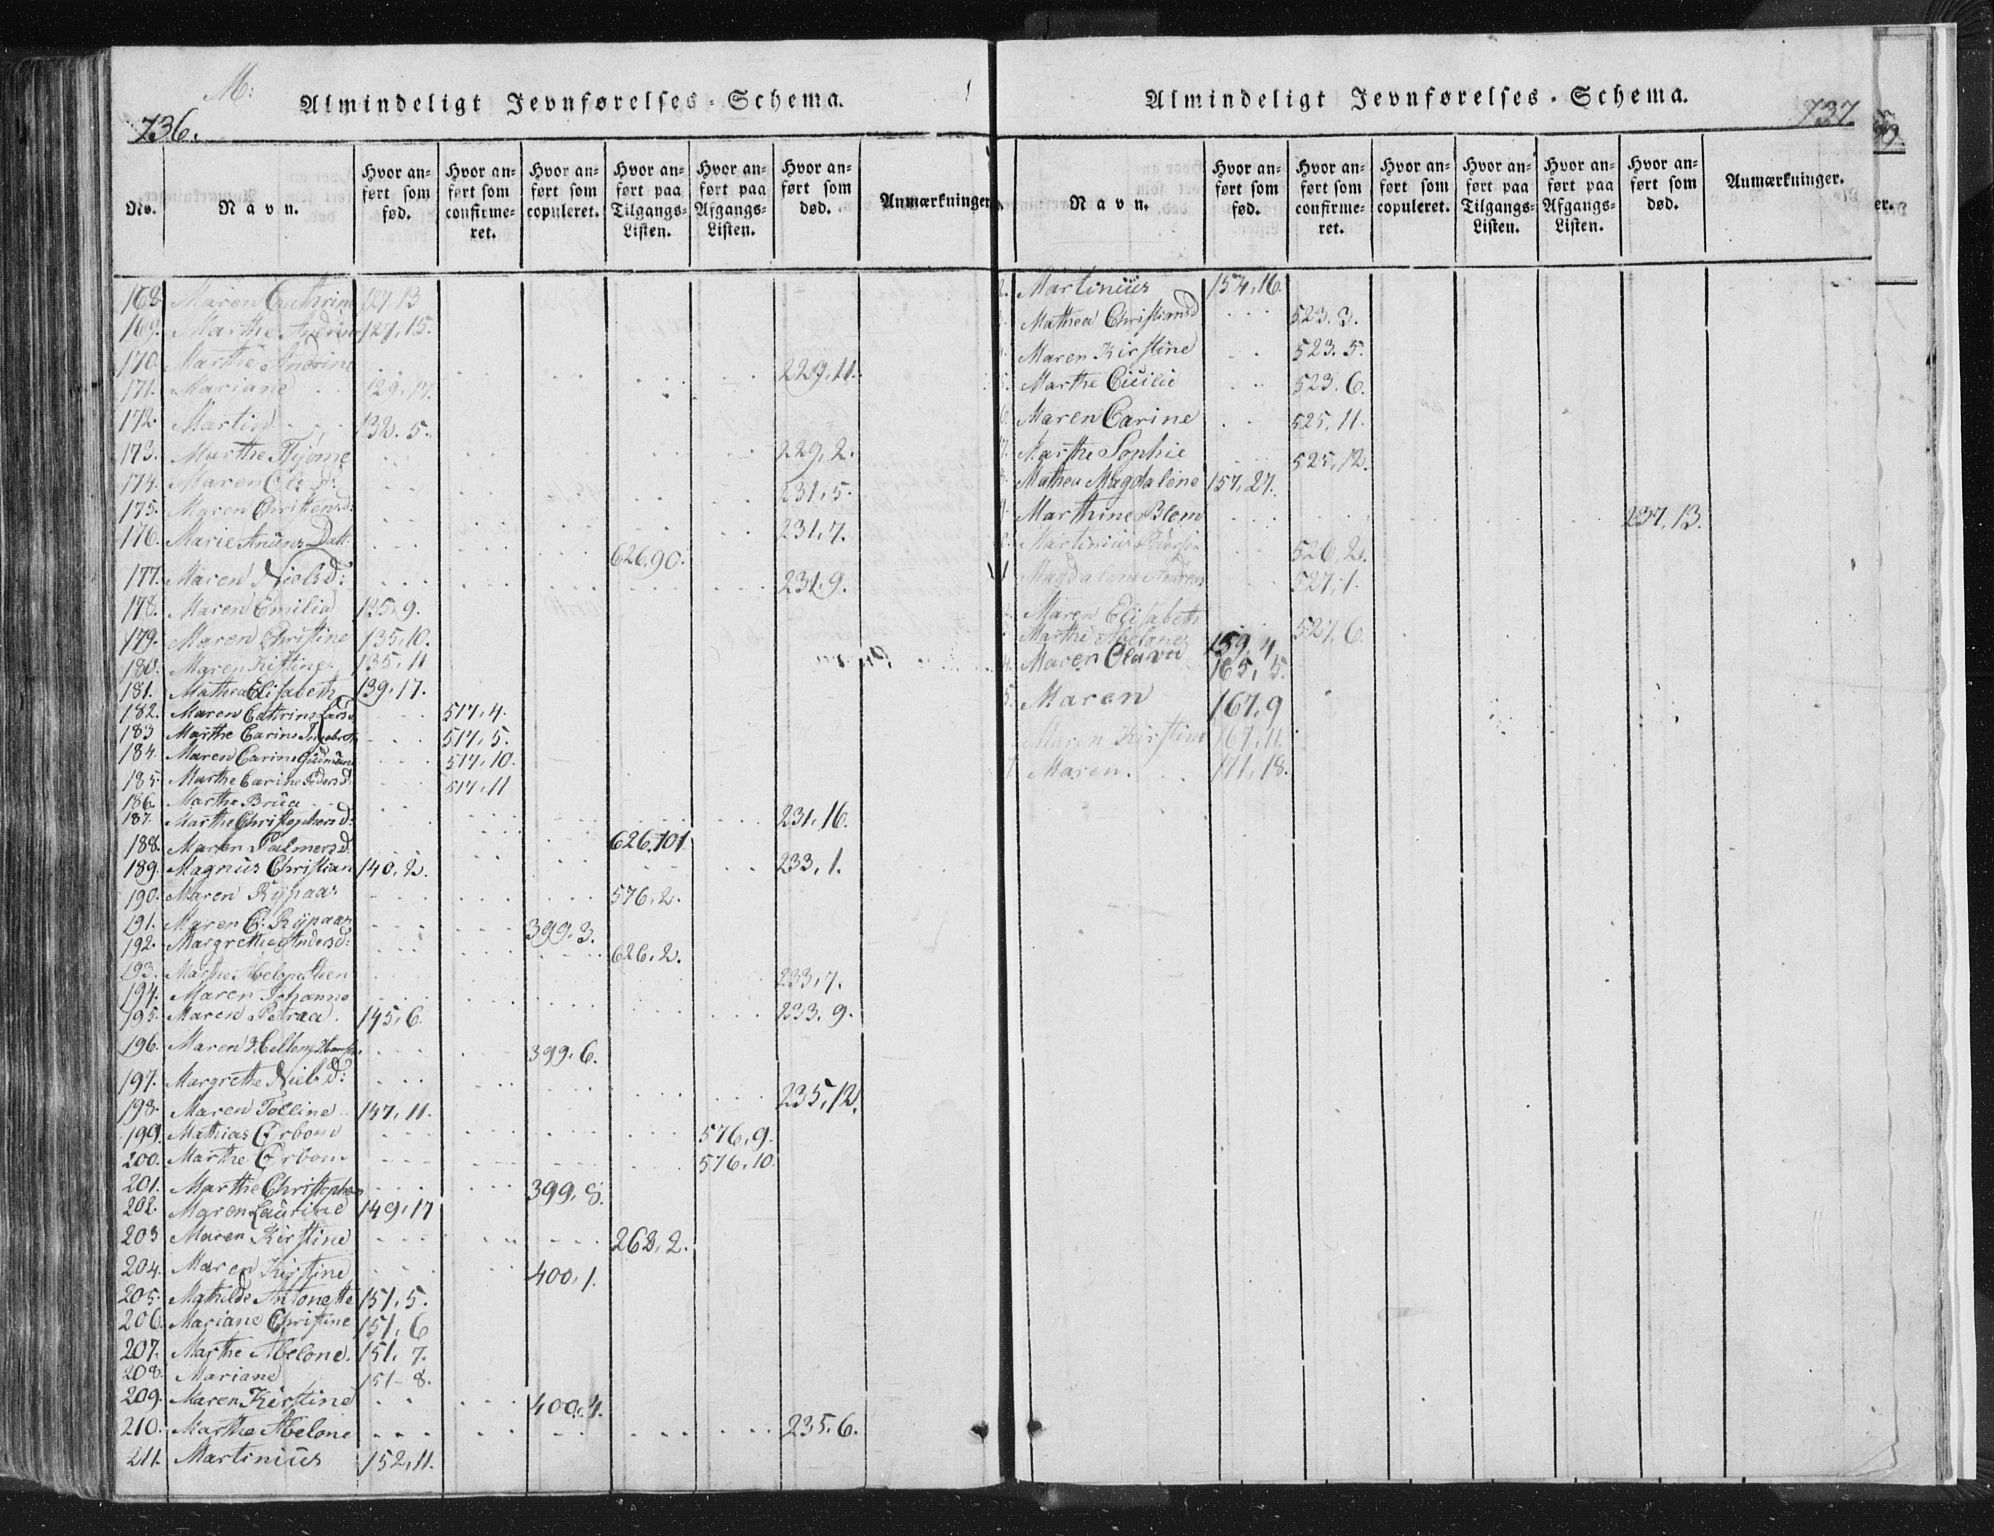 M:
Almindeligt Jevnførelses-Schema.
736.
No. Navn. Hvor anført som fød. Hvor anført som confirmeret. Hvor anført som copuleret. Hvor anført paa Tilgangs-Listen. Hvor anført paa Afgangs-Listen. Hvor anført som død. Anmærkninger
168. Maren Cathrine 127.13
169. Marthe Andrea 127,15.
170. Marthe Andrine 229,11.
171. Mariane 129,17.
172. Martin 132.5.
173. Marthe Tjøme 229,2.
174. Maren Ole d: 231,5.
175. Maren Christensd: 231,7.
176. Marie Anüns Datt. 626,90.
177. Maren Niels d: 231.9.
178. Maren Emilia 135,9.
179. Maren Christine 135,10.
180. Maren Kistine 135,11
181. Mathea Elisabeth 139.17.
182. Maren Cathrine Larsd 517,4.
183 Marthe Carine 517,5.
184. Maren Carine 517,10.
185. Marthe Carine Pedersd: 517,11
186. Marthe Brüa 231,16.
187. Marthe Christophersd: 626,101
188. Maren Palmersd. 233,1.
189. Magnüs Christian 140,2.
190. Maren Rÿpaas 576,2.
191. Maren C: Rÿpaas 399.3.
192. Margrethe Andersd: 626,2.
193. Marthe 233,7.
194. Maren Johanne 233.9.
195. Maren Petræa. 145,6.
196. Maren 399.6.
197. Margrethe Niels d: 235,12.
198. Maren Tolline 147,11.
199. Mathias Ørbom 576,9.
200. Marthe Ørbom 576,10.
201. Marthe Christoph 399,8.
202. Maren Laürine 149,17
203 Maren Kirstine 268,2.
204. Maren Kirstine 400,1.
205. Mathilde Antonette 151,5.
206. Mariane Christine 151,6
207. Marthe Abelone. 151,7.
208. Mariane 151-8.
209. Maren Kirstine 400,4.
210. Marthe Abelone 235.6.
211. Martiniüs 152,11.
Almindeligt Jevnførelses-Schema.
737.
Navn. Hvor anført som fød. Hvor anført som confirmeret. Hvor anført som copuleret. Hvor anført paa Tilgangs-Listen. Hvor anført paa Afgangs-Listen. Hvor anført som død. Anmærkninger.
Martiniüs 154,16.
Mathea Christiansd 523.3.
Maren Kirstine 523.5.
Marthe Cicilie 523.6.
Maren Carine 525,11.
Marthe Sophie 525,12.
Mathea Magdalene 157,27.
Marthine Blom 237,13.
Martiniüs 526,2.
Magdalene 527,1.
Maren Elisabeth 527,6.
Marthe Abelone 159,4
Maren Olava 165,5.
Maren 167,9
Maren Kirstine 167,11.
Maren. 171,18.